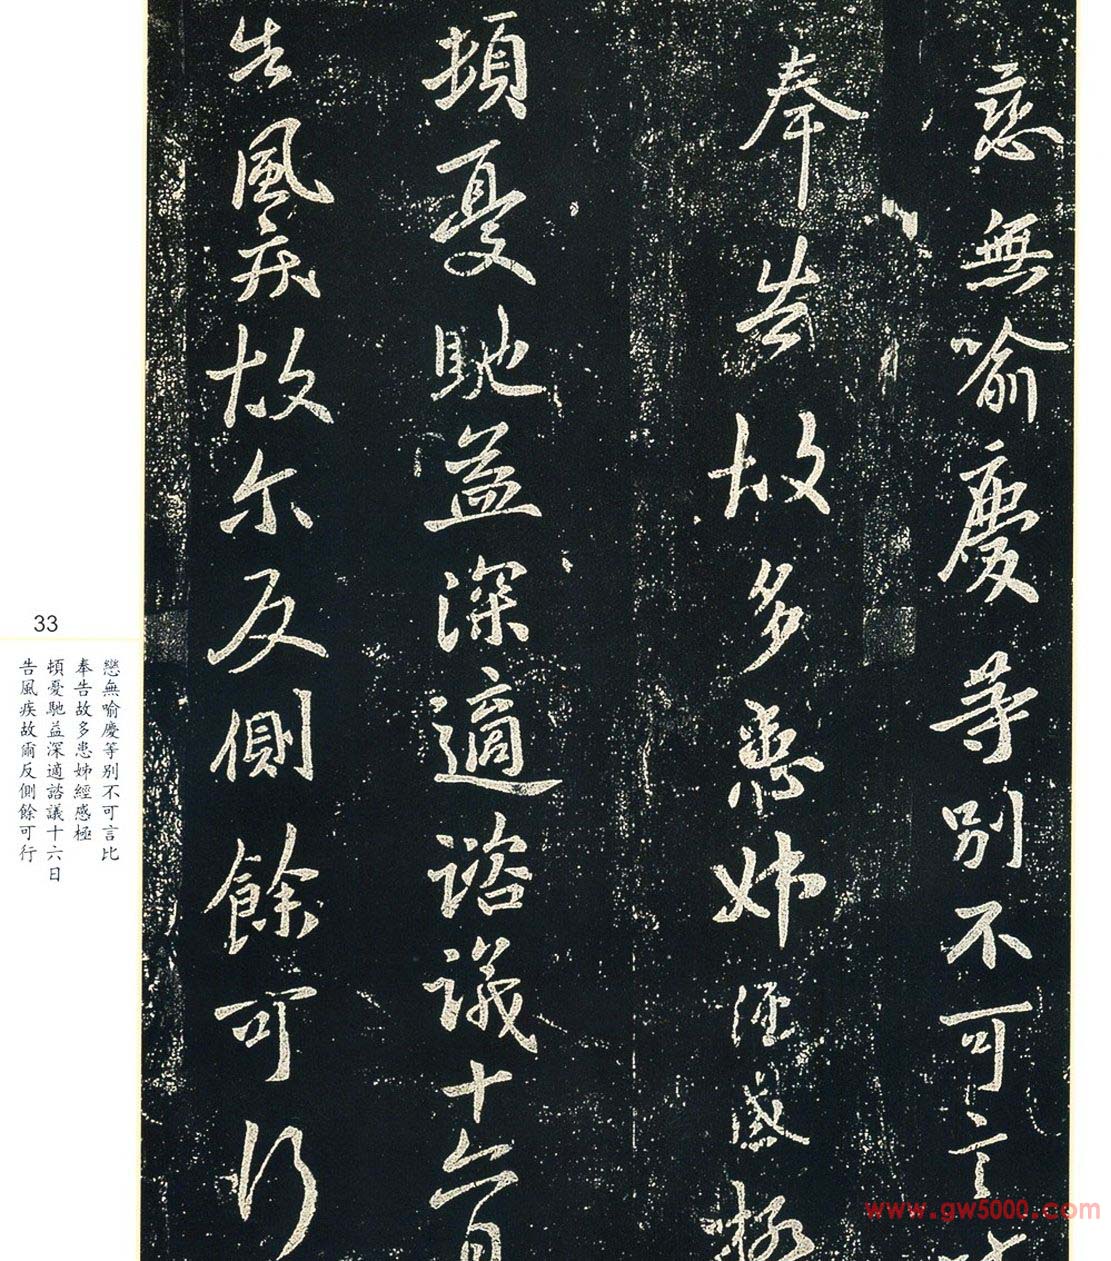 戀無喻慶等別不可言比
奉告故多患姊經感極
頓憂馳益深適諮議十六日
告風疾故尔反側餘可行
33
戀無喻慶等別不可言比
奉告故多患姊經感極
頓憂馳益深適諮議十六日
告風疾故爾反側餘可行
www.gw5000.com